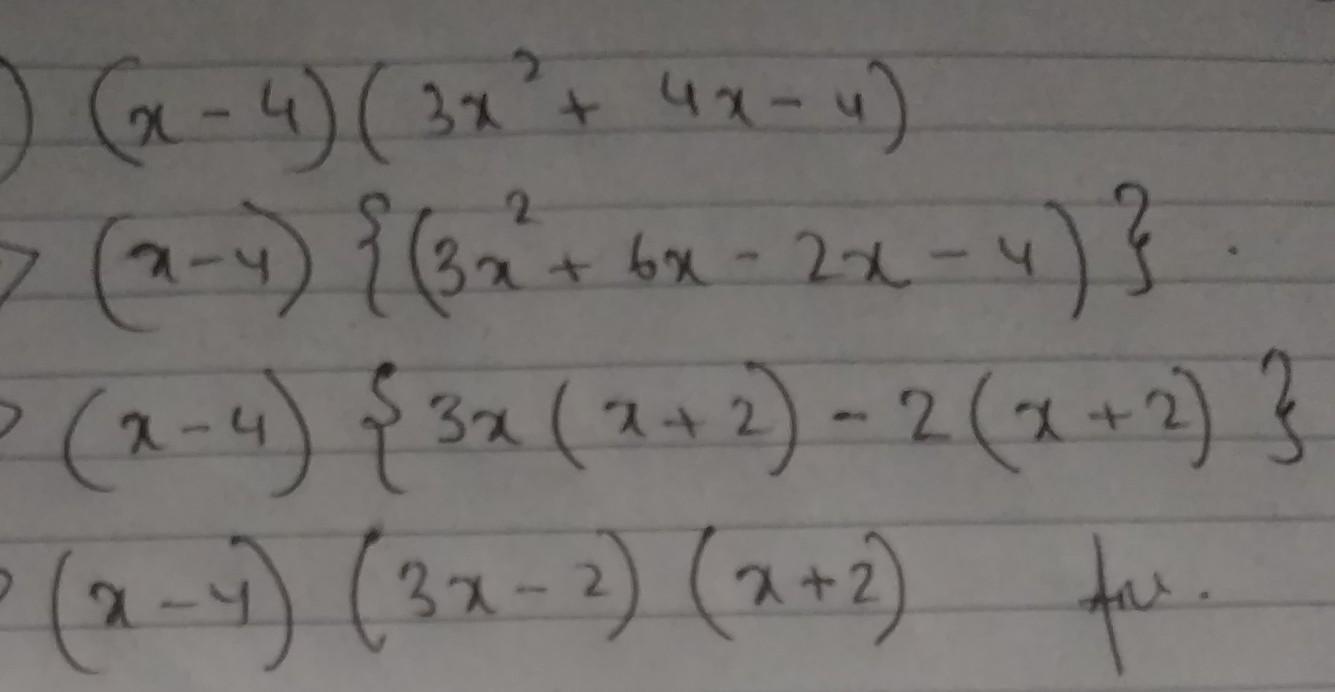 ) (x - 4) (3x² + 4x - 4)
> (x - 4) {(3x² + 6x - 2x - 4)} .
> (x - 4) {3x (x + 2) - 2 (x + 2) }
> (x - 4) (3x - 2) (x + 2)